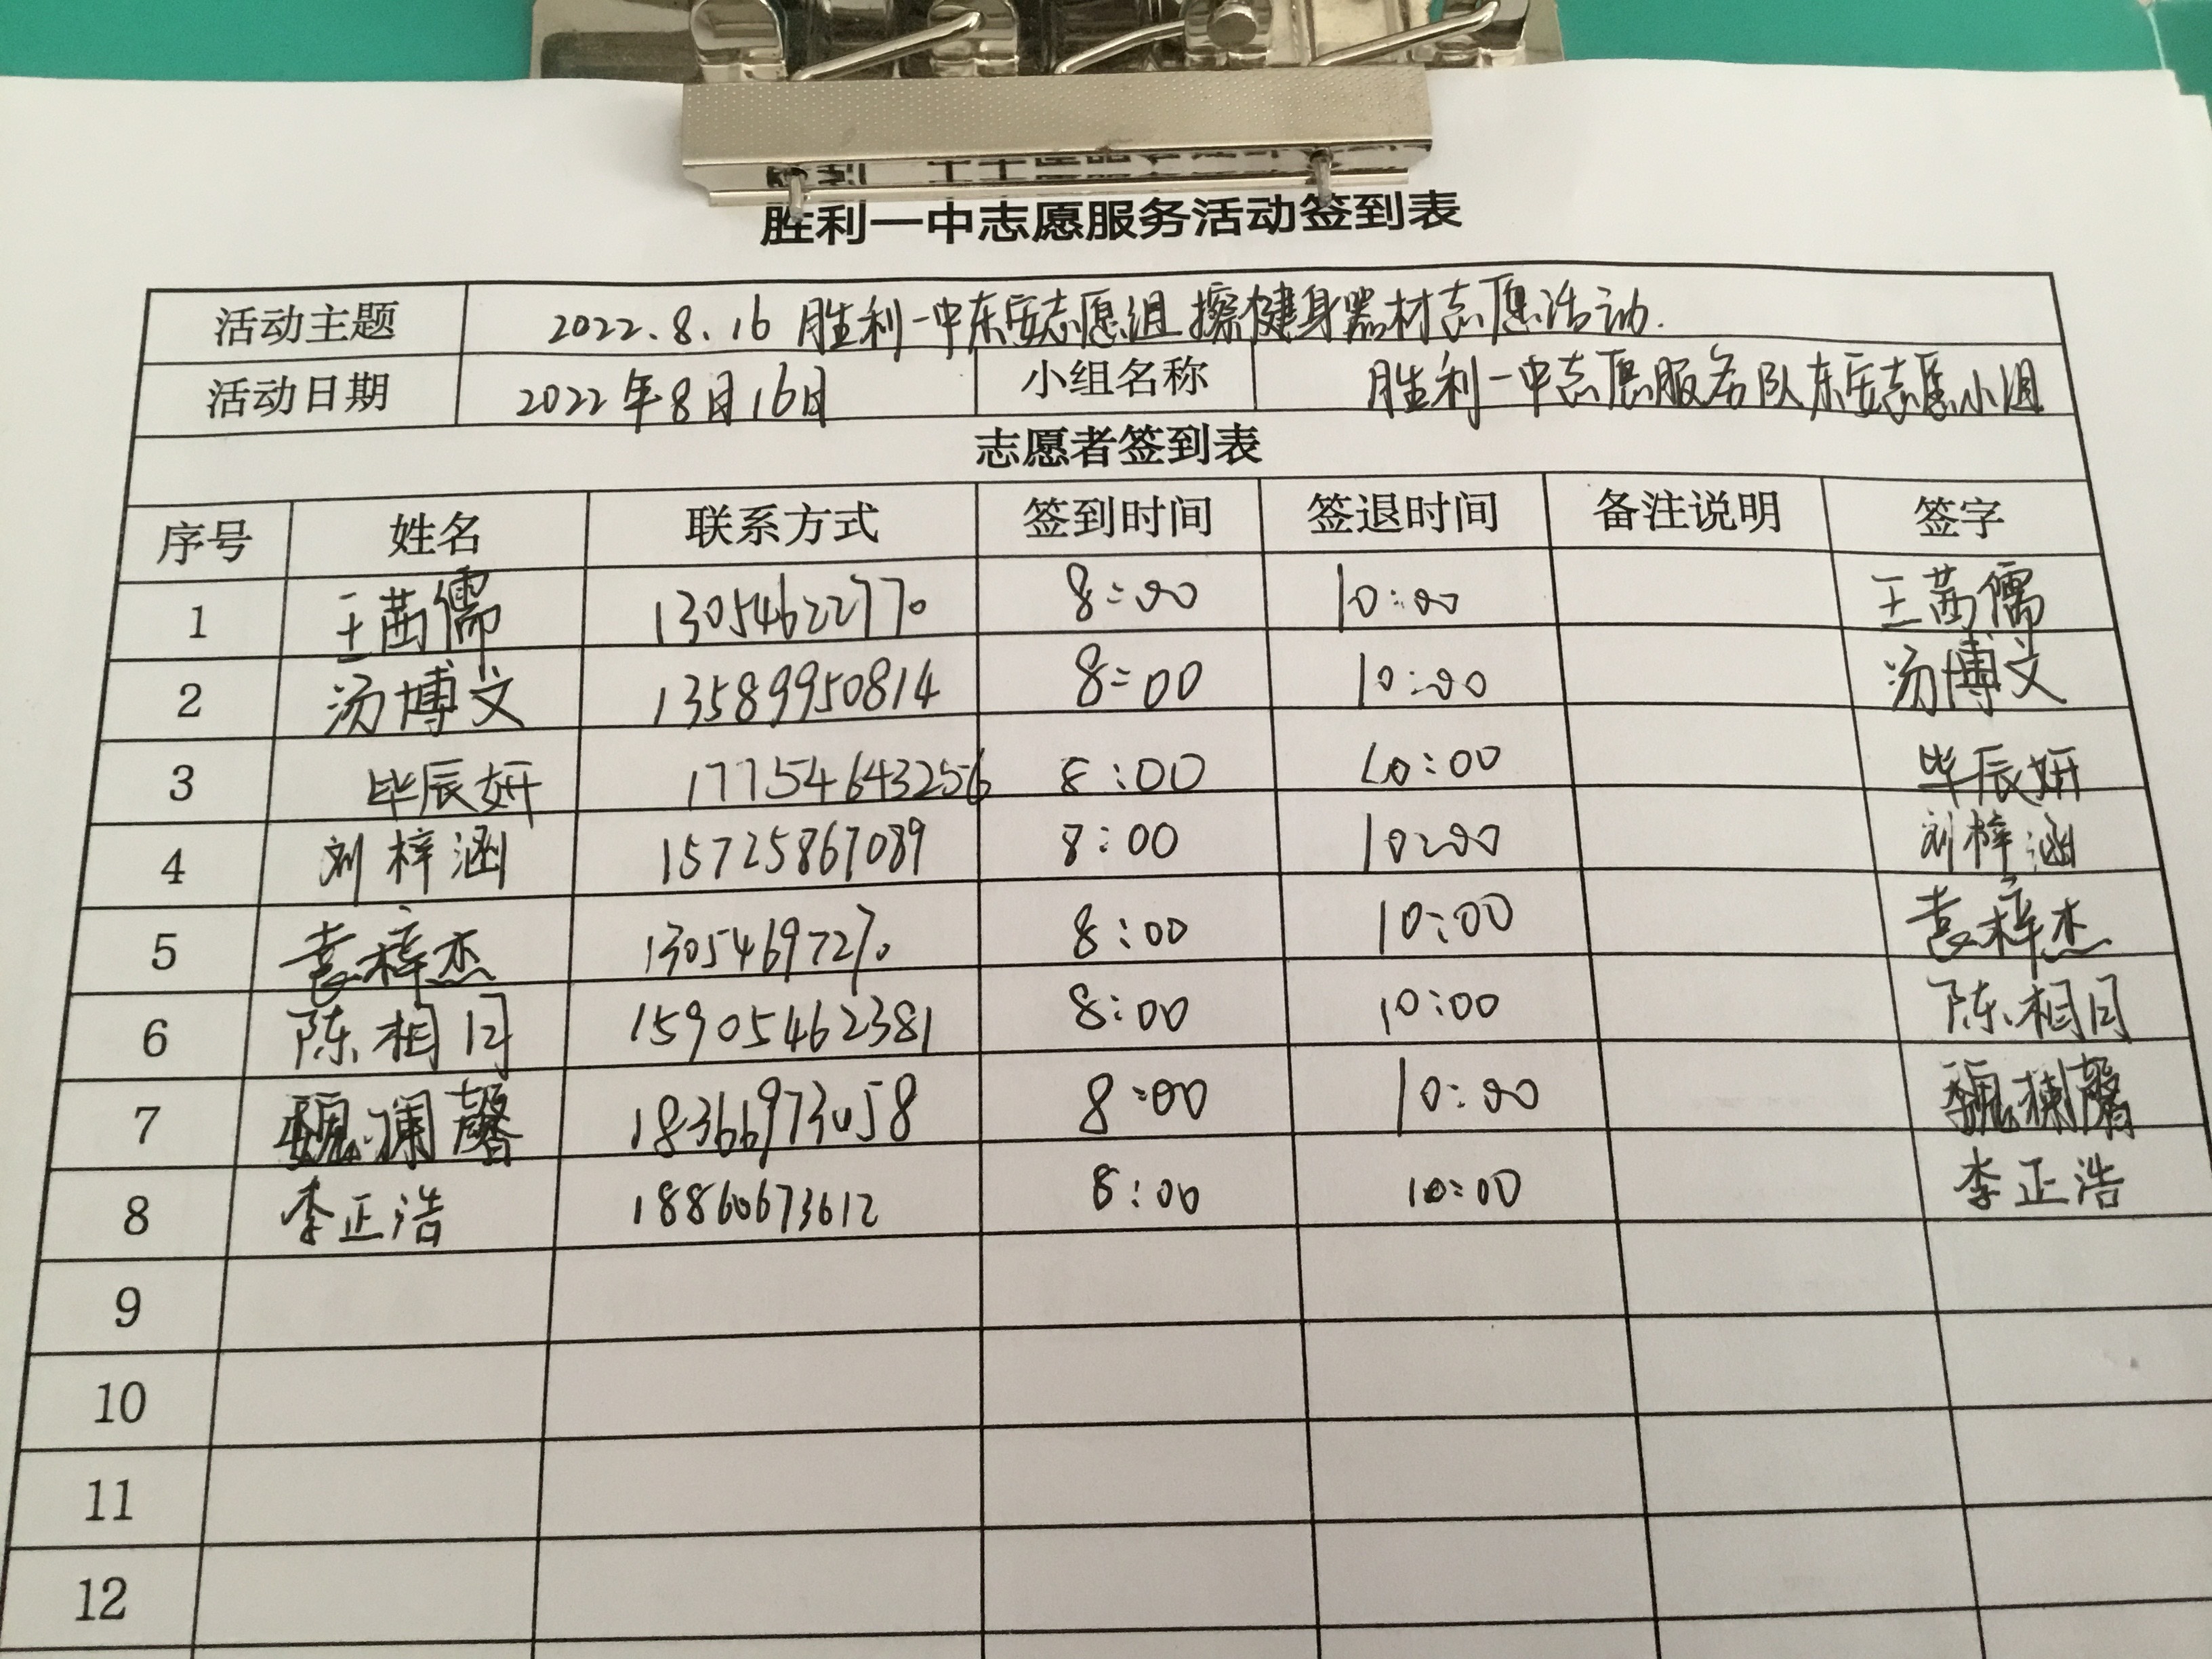 胜利一中志愿服务活动签到表
活动主题 2022.8.16 胜利一中东安志愿组擦健身器材志愿活动.
活动日期 2022年8月16日 小组名称 胜利一中志愿服务队东安志愿小组
志愿者签到表
序号 姓名 联系方式 签到时间 签退时间 备注说明 签字
1 王茜儒 13054622770 8:00 10:00 王茜儒
2 汤博文 13589950814 8:00 10:00 汤博文
3 毕辰妍 17754643256 8:00 10:00 毕辰妍
4 刘梓涵 15725867089 8:00 10:00 刘梓涵
5 袁梓杰 8:00 10:00 袁梓杰
6 陈相 15905462381 8:00 10:00 陈相
7 魏澜馨 18366973058 8:00 10:00 魏 馨
8 李正浩 18860673612 8:00 10:00 李正浩
9
10
11
12